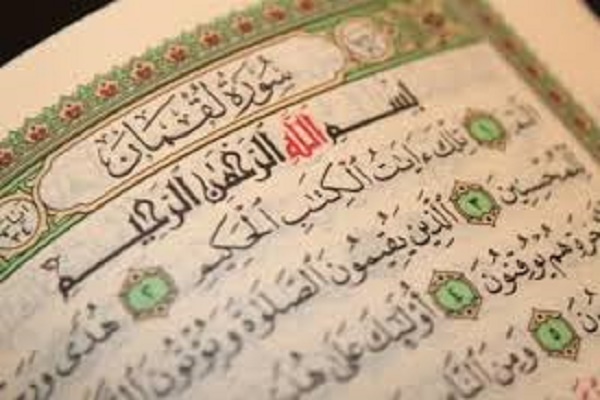 سُورَةُ لُقْمَانَ
بِسْمِ اللَّهِ الرَّحْمَٰنِ الرَّحِيمِ
الٓمٓ ١ تِلْكَ ءَايَٰتُ ٱلْكِتَٰبِ ٱلْحَكِيمِ
٢ هُدًى وَرَحْمَةً لِّلْمُحْسِنِينَ ٣ ٱلَّذِينَ يُقِيمُونَ ٱلصَّلَوٰةَ وَيُؤْتُونَ
هُمْ يُوقِنُونَ ٤ أُو۟لَٰٓئِكَ عَلَىٰ هُدًى
٥ وَمِنَ ٱلنَّاسِ